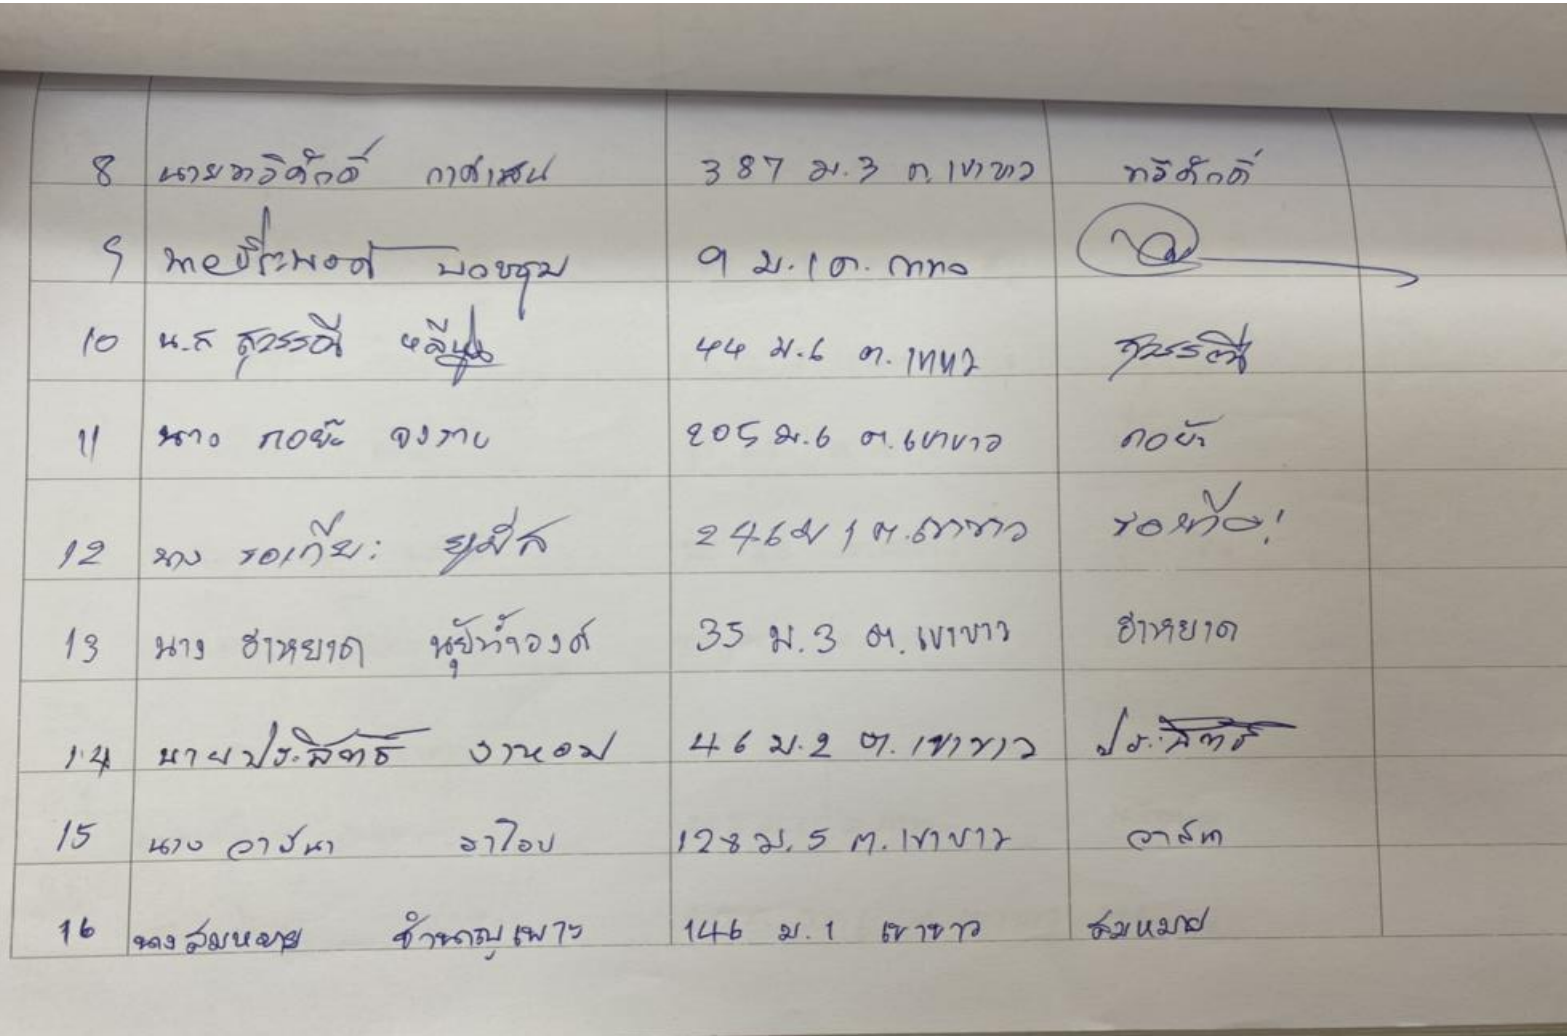 8 นายทวีศักดิ์ กาศเสน 387 ม.3 ต.เขาขาว ทวีศักดิ์
9 9 ม.1 ต.
10 น.ส สุวรรณี หลีนุ่น 44 ม.6 ต.เขาขาว สุวรรณี
11 นาง กอย๊ะ จงราบ 205 ม.6 ต.เขาขาว กอย๊ะ
12 นาง รอเกี๊ยะ ยูมีส 246 ม 1 ต.เขาขาว
13 นาง ฮาหยาด นุ้ยน้ำวงค์ 35 ม.3 ต.เขาขาว ฮาหยาด
14 นายประสิทธิ์ งาหอม 46 ม.2 ต.เขาขาว ประสิทธิ์
15 นาง วาสนา 128 ม.5 ต.เขาขาว วาสนา
16 นางสมหมาย ชำนาญเพาะ 146 ม.1 เขาขาว สมหมาย